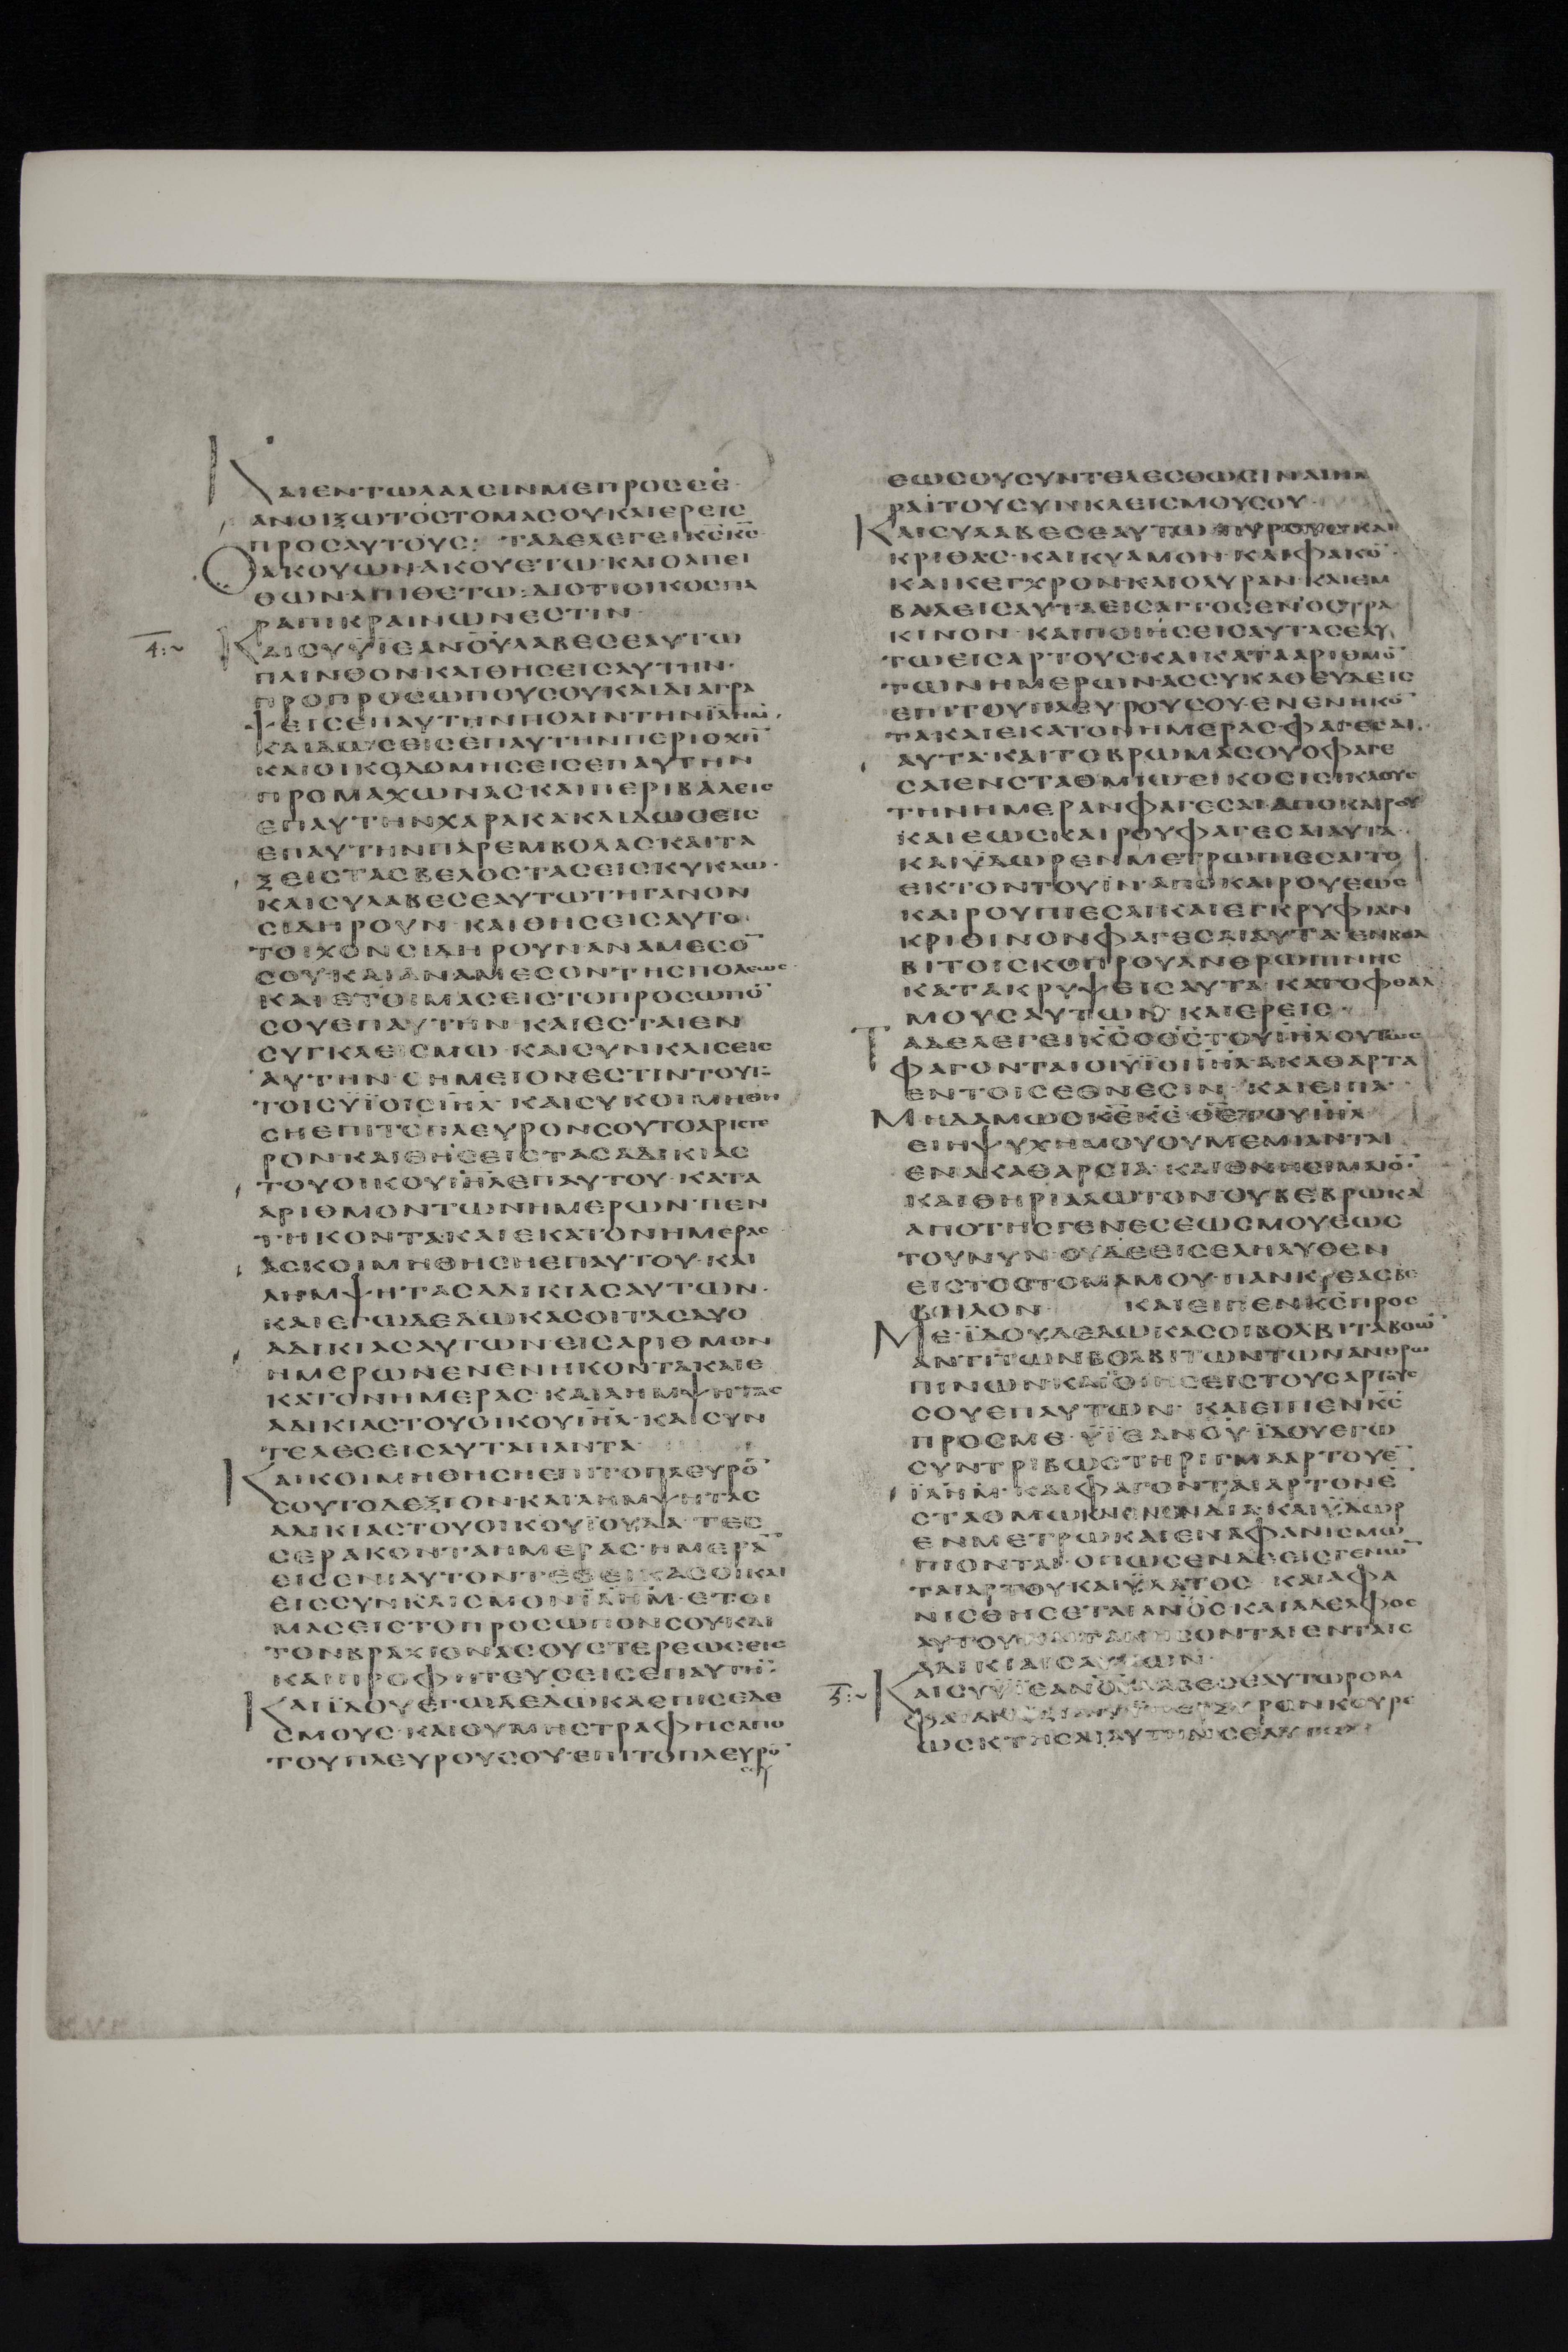 ΚΑΙΕΝΤΩΛΑΛΕΙΝΜΕΠΡΟΣΣΕ·
ΑΝΟΙΞΩΤΟΣΤΟΜΑΣΟΥ·ΚΑΙΕΡΕΙΣ
ΠΡΟΣΑΥΤΟΥΣ: ΤΑΔΕΛΕΓΕΙΚΣΚΣ·
ΟΑΚΟΥΩΝΑΚΟΥΕΤΩ·ΚΑΙΟΑΠΕΙ
ΘΩΝΑΠΙΘΕΤΩ:ΔΙΟΤΙΟΙΚΟΣΠΑ
ΡΑΠΙΚΡΑΙΝΩΝΕΣΤΙΝ·
4:~ ΚΑΙΣΥΫΙΕΑΝΟΥΛΑΒΕΣΕΑΥΤΩ
ΠΛΙΝΘΟΝΚΑΙΘΗΣΕΙΣΑΥΤΗΝ·
ΠΡΟΠΡΟΣΩΠΟΥΣΟΥΚΑΙΔΙΑΓΡΑ
ΨΕΙΣΕΠΑΥΤΗΝΠΟΛΙΝΤΗΝΙΛΗΜ·
ΚΑΙΔΩΣΕΙΣΕΠΑΥΤΗΝΠΕΡΙΟΧΗ̅
ΚΑΙΟΙΚΟΔΟΜΗΣΕΙΣΕΠΑΥΤΗΝ
ΠΡΟΜΑΧΩΝΑΣΚΑΙΠΕΡΙΒΑΛΕΙΣ
ΕΠΑΥΤΗΝΧΑΡΑΚΑΚΑΙΔΩΣΕΙΣ
ΕΠΑΥΤΗΝΠΑΡΕΜΒΟΛΑΣΚΑΙΤΑ
ΞΕΙΣΤΑΣΒΕΛΟΣΤΑΣΕΙΣΚΥΚΛΩ·
ΚΑΙΣΥΛΑΒΕΣΕΑΥΤΩΤΗΓΑΝΟΝ
ΣΙΔΗΡΟΥΝ·ΚΑΙΘΗΣΕΙΣΑΥΤΟ
ΤΟΙΧΟΝΣΙΔΗΡΟΥΝΑΝΑΜΕΣΟ̅
ΣΟΥΚΑΙΑΝΑΜΕΣΟΝΤΗΣΠΟΛΕΩΣ·
ΚΑΙΕΤΟΙΜΑΣΕΙΣΤΟΠΡΟΣΩΠΟ̅
ΣΟΥΕΠΑΥΤΗΝ·ΚΑΙΕΣΤΑΙΕΝ
ΣΥΓΚΛΕΙΣΜΩ·ΚΑΙΣΥΝΚΛΙΣΕΙΣ
ΑΥΤΗΝ·ΣΗΜΕΙΟΝΕΣΤΙΝΤΟΥΤΟ
ΤΟΙΣΥΪΟΙΣΙΗΛ·ΚΑΙΣΥΚΟΙΜΗΘΗ
ΣΗΕΠΙΤΟΠΛΕΥΡΟΝΣΟΥΤΟΑΡΙΣΤΕ
ΡΟΝ·ΚΑΙΘΗΣΕΙΣΤΑΣΑΔΙΚΙΑΣ
ΤΟΥΟΙΚΟΥΙΗΛΕΠΑΥΤΟΥ·ΚΑΤΑ
ΑΡΙΘΜΟΝΤΩΝΗΜΕΡΩΝ·ΠΕΝ
ΤΗΚΟΝΤΑΚΑΙΕΚΑΤΟΝΗΜΕΡΑΣ
ΑΣΚΟΙΜΗΘΗΣΗΕΠΑΥΤΟΥ·ΚΑΙ
ΛΗΜΨΗΤΑΣΑΔΙΚΙΑΣΑΥΤΩΝ·
ΚΑΙΕΓΩΔΕΔΩΚΑΣΟΙΤΑΣΔΥΟ
ΑΔΙΚΙΑΣΑΥΤΩΝΕΙΣΑΡΙΘΜΟΝ
ΗΜΕΡΩΝΕΝΕΝΗΚΟΝΤΑΚΑΙΕ
ΚΑΤΟΝΗΜΕΡΑΣ·ΚΑΙΛΗΜΨΗΤΑΣ
ΑΔΙΚΙΑΣΤΟΥΟΙΚΟΥΙΗΛ·ΚΑΙΣΥΝ
ΤΕΛΕΣΕΙΣΑΥΤΑΠΑΝΤΑ
ΚΑΙΚΟΙΜΗΘΗΣΗΕΠΙΤΟΠΛΕΥΡΟ̅
ΣΟΥΤΟΔΕΞΙΟΝ·ΚΑΙΛΗΜΨΗΤΑΣ
ΑΔΙΚΙΑΣΤΟΥΟΙΚΟΥΪΟΥΔΑ·ΤΕΣ
ΣΕΡΑΚΟΝΤΑΗΜΕΡΑΣ·ΗΜΕΡΑ̅
ΕΙΣΕΝΙΑΥΤΟΝΤΕΘΕΙΚΑΣΟΙΚΑΙ
ΕΙΣΣΥΝΚΛΙΣΜΟΝΙΛΗΜ·ΕΤΟΙ
ΜΑΣΕΙΣΤΟΠΡΟΣΩΠΟΝΣΟΥΚΑΙ
ΤΟΝΒΡΑΧΙΟΝΑΣΟΥΣΤΕΡΕΩΣΕΙΣ
ΚΑΙΠΡΟΦΗΤΕΥΣΕΙΣΕΠΑΥΤΗ̅·
ΚΑΙΪΔΟΥΕΓΩΔΕΔΩΚΑΕΠΙΣΕΔΕ
ΣΜΟΥΣ·ΚΑΙΟΥΜΗΣΤΡΑΦΗΣΑΠΟ
ΤΟΥΠΛΕΥΡΟΥΣΟΥ·ΕΠΙΤΟΠΛΕΥΡΟ̅
ΕΩΣΟΥΣΥΝΤΕΛΕΣΘΩΣΙΝΑΙΗΜΕ
ΡΑΙΤΟΥΣΥΝΚΛΕΙΣΜΟΥΣΟΥ·
ΚΑΙΣΥΛΑΒΕΣΕΑΥΤΩΠΥΡΟΥΣΚΑΙ
ΚΡΙΘΑΣ·ΚΑΙΚΥΑΜΟΝ·ΚΑΙΦΑΚΟ̅·
ΚΑΙΚΕΓΧΡΟΝ·ΚΑΙΟΛΥΡΑΝ·ΚΑΙΕΜ
ΒΑΛΕΙΣΑΥΤΑΕΙΣΑΓΓΟΣΕΝΟΣΤΡΑ
ΚΙΝΟΝ·ΚΑΙΠΟΙΗΣΕΙΣΑΥΤΑΣΕΑΥ
ΤΩΕΙΣΑΡΤΟΥΣΚΑΙΚΑΤΑΑΡΙΘΜΟ̅
ΤΩΝΗΜΕΡΩΝΑΣΣΥΚΑΘΕΥΔΕΙΣ
ΕΠΙΤΟΥΠΛΕΥΡΟΥΣΟΥ·ΕΝΕΝΗΚΟ̅
ΤΑΚΑΙΕΚΑΤΟΝΗΜΕΡΑΣΦΑΓΕΣΑΙ·
ΑΥΤΑ·ΚΑΙΤΟΒΡΩΜΑΣΟΥΟΦΑΓΕ
ΣΑΙΕΝΣΤΑΘΜΙΩΕΙΚΟΣΙΣΙΚΛΟΥΣ
ΤΗΝΗΜΕΡΑΝΦΑΓΕΣΑΙ·ΑΠΟΚΑΙΡΟΥ
ΚΑΙΕΩΣΚΑΙΡΟΥΦΑΓΕΣΑΙΑΥΤΑ·
ΚΑΙΫΔΩΡΕΝΜΕΤΡΩΠΙΕΣΑΙΤΟ
ΕΚΤΟΝΤΟΥΙΝ·ΑΠΟΚΑΙΡΟΥΕΩΣ
ΚΑΙΡΟΥΠΙΕΣΑΙ·ΚΑΙΕΓΚΡΥΦΙΑΝ
ΚΡΙΘΙΝΟΝΦΑΓΕΣΑΙΑΥΤΑ·ΕΝΒΟΛ
ΒΙΤΟΙΣΚΟΠΡΟΥΑΝΘΡΩΠΙΝΗΣ
ΚΑΤΑΚΡΥΨΕΙΣΑΥΤΑ·ΚΑΤΟΦΘΑΛ
ΜΟΥΣΑΥΤΩΝ·ΚΑΙΕΡΕΙΣ·
ΤΑΔΕΛΕΓΕΙΚΣΟΘΣΤΟΥΙΗΛΟΥΤΩΣ
ΦΑΓΟΝΤΑΙΟΙΥΪΟΙΙΗΛ·ΑΚΑΘΑΡΤΑ
ΕΝΤΟΙΣΕΘΝΕΣΙΝ· ΚΑΙΕΙΠΑ·
ΜΗΔΑΜΩΣΚΕΚΕΘΕΤΟΥΙΗΛ
ΕΙΗΨΥΧΗΜΟΥΟΥΜΕΜΙΑΝΤΑΙ
ΕΝΑΚΑΘΑΡΣΙΑ·ΚΑΙΘΝΗΣΙΜΑΙΟ̅·
ΚΑΙΘΗΡΙΑΛΩΤΟΝΟΥΒΕΒΡΩΚΑ
ΑΠΟΤΗΣΓΕΝΕΣΕΩΣΜΟΥΕΩΣ
ΤΟΥΝΥΝ·ΟΥΔΕΕΙΣΕΛΗΛΥΘΕΝ
ΕΙΣΤΟΣΤΟΜΑΜΟΥ·ΠΑΝΚΡΕΑΣΒΕ
ΒΗΛΟΝ ΚΑΙΕΙΠΕΝΚΣΠΡΟΣ
ΜΕ·ΪΔΟΥΔΕΔΩΚΑΣΟΙΒΟΛΒΙΤΑΒΟΩ̅
ΑΝΤΙΤΩΝΒΟΛΒΙΤΩΝΤΩΝΑΝΘΡΩ
ΠΙΝΩΝ·ΚΑΙΠΟΙΗΣΕΙΣΤΟΥΣΑΡΤΟΥΣ
ΣΟΥΕΠΑΥΤΩΝ· ΚΑΙΕΙΠΕΝΚΣ
ΠΡΟΣΜΕ·ΥΪΕΑΝΟΥ·ΪΔΟΥΕΓΩ
ΣΥΝΤΡΙΒΩΣΤΗΡΙΓΜΑΑΡΤΟΥΕ̅
ΪΛΗΜ·ΚΑΙΦΑΓΟΝΤΑΙΑΡΤΟΝΕ̅
ΣΤΑΘΜΩΚΑΙΕΝΕΝΔΙΑ·ΚΑΙΫΔΩΡ
ΕΝΜΕΤΡΩΚΑΙΕΝΑΦΑΝΙΣΜΩ
ΠΙΟΝΤΑΙ·ΟΠΩΣΕΝΔΕΕΙΣΓΕΝΩ̅
ΤΑΙΑΡΤΟΥΚΑΙΫΔΑΤΟΣ· ΚΑΙΑΦΑ
ΝΙΣΘΗΣΕΤΑΙΑΝΟΣΚΑΙΑΔΕΛΦΟΣ
ΑΥΤΟΥΚΑΙΤΑΚΗΣΟΝΤΑΙΕΝΤΑΙΣ
ΑΔΙΚΙΑΙΣΑΥΤΩΝ·
5:~ ΚΑΙΣΥΫΙΕΑΝΟΥΛΑΒΕΣΕΑΥΤΩΡΟΜ
ΦΑΙΑΝΟΞΕΙΑΝΥΠΕΡΞΥΡΟΝΚΟΥΡΕ
ΩΣΚΤΗΣΑΙΑΥΤΗΝΣΕΑΥΤΩ